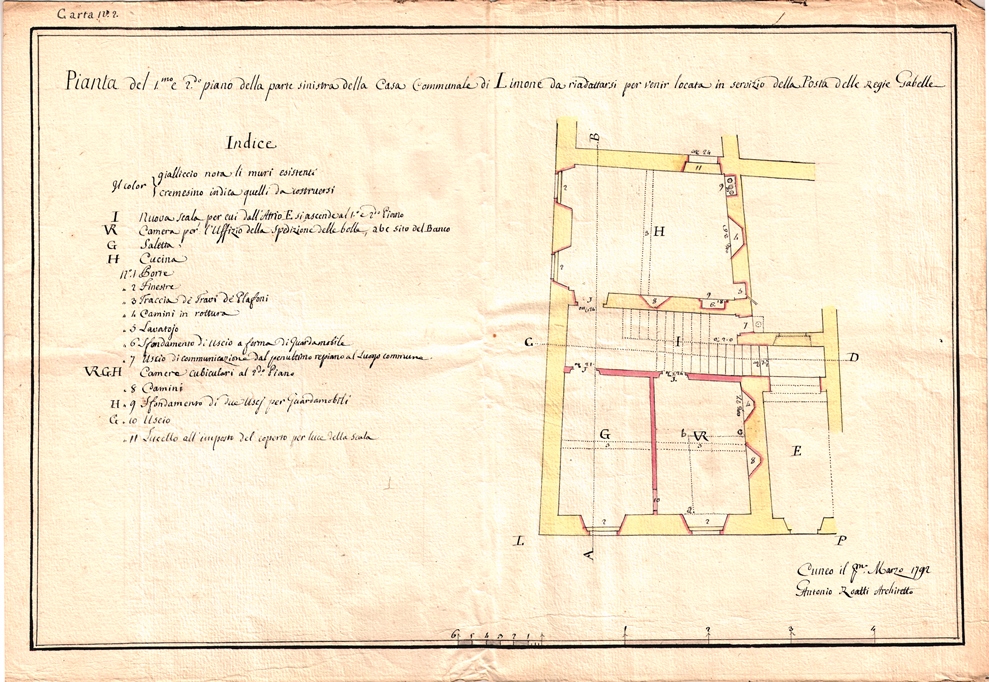 Carta n.° 2.
Pianta del 1.mo e 2.do piano della parte sinistra della Casa Communale di Limone da riadattarsi per venir locata in servizio della Posta delle Regie Gabelle
Indice
Il color
gialliccio nota li muri esistenti
cremesino indica quelli da costruersi
I Nuova scala per cui dall'Atrio E si ascende al 1.° e 2.do Piano
VR Camera per l'Uffizio della Spedizione delle bolle, abc sito del Banco
G Saletta
H Cucina
n.° 1 Porte
. 2 Finestre
. 3 Traccia de Travi de Plafoni
. 4 Camini in rottura
. 5 Lavatojo
. 6 Sfondamento di Uscio a forma di Guardamobile
. 7 Uscio di communicazione dal penultimo repiano al Luogo commune
VRGH Camere cubiculari al 2.do Piano
. 8 Camini
H . 9 Sfondamento di due Uscj per Guardamobili
G . 10 Uscio
. 11 Lucello all'imposto del coperto per luce della scala
B
11
2
H
9
4
2
5
8
9
6
7
C
I
D
G
VR
b
4
8
E
10
2
2
L
A
P
Cuneo il Marzo 1792
Antonio Architetto
6 5 4 3 2 1 1 2 3 4